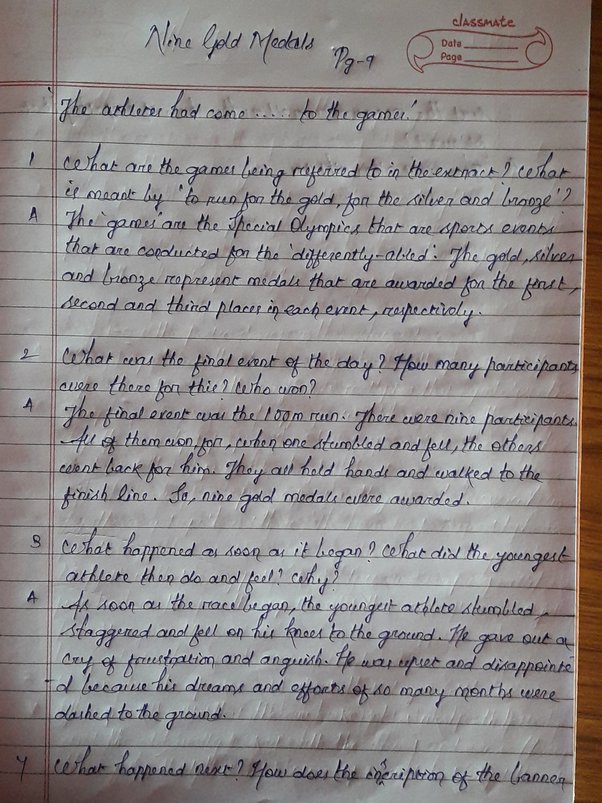 Nine Gold Medals
Pg-9
classmate
Date
Page
'The athletes had come ..... to the games.'
1 What are the games being referred to in the extract? What
is meant by 'to run for the gold, for the silver and bronze'?
A The 'games' are the Special Olympics that are sports events
that are conducted for the 'differently-abled'. The gold, silver
and bronze represent medals that are awarded for the first,
second and third places in each event, respectively.
2 What was the final event of the day? How many participants
were there for this? Who won?
A The final event was the 100m run. There were nine participants.
All of them won, for, when one stumbled and fell, the others
went back for him. They all held hands and walked to the
finish line. So, nine gold medals were awarded.
3 What happened as soon as it began? What did the youngest
athlete then do and feel? Why?
A As soon as the race began, the youngest athlete stumbled,
staggered and fell on his knees to the ground. He gave out a
cry of frustration and anguish. He was upset and disappointe
-d because his dreams and efforts of so many months were
dashed to the ground.
4 What happened next? How does the inscription of the banner